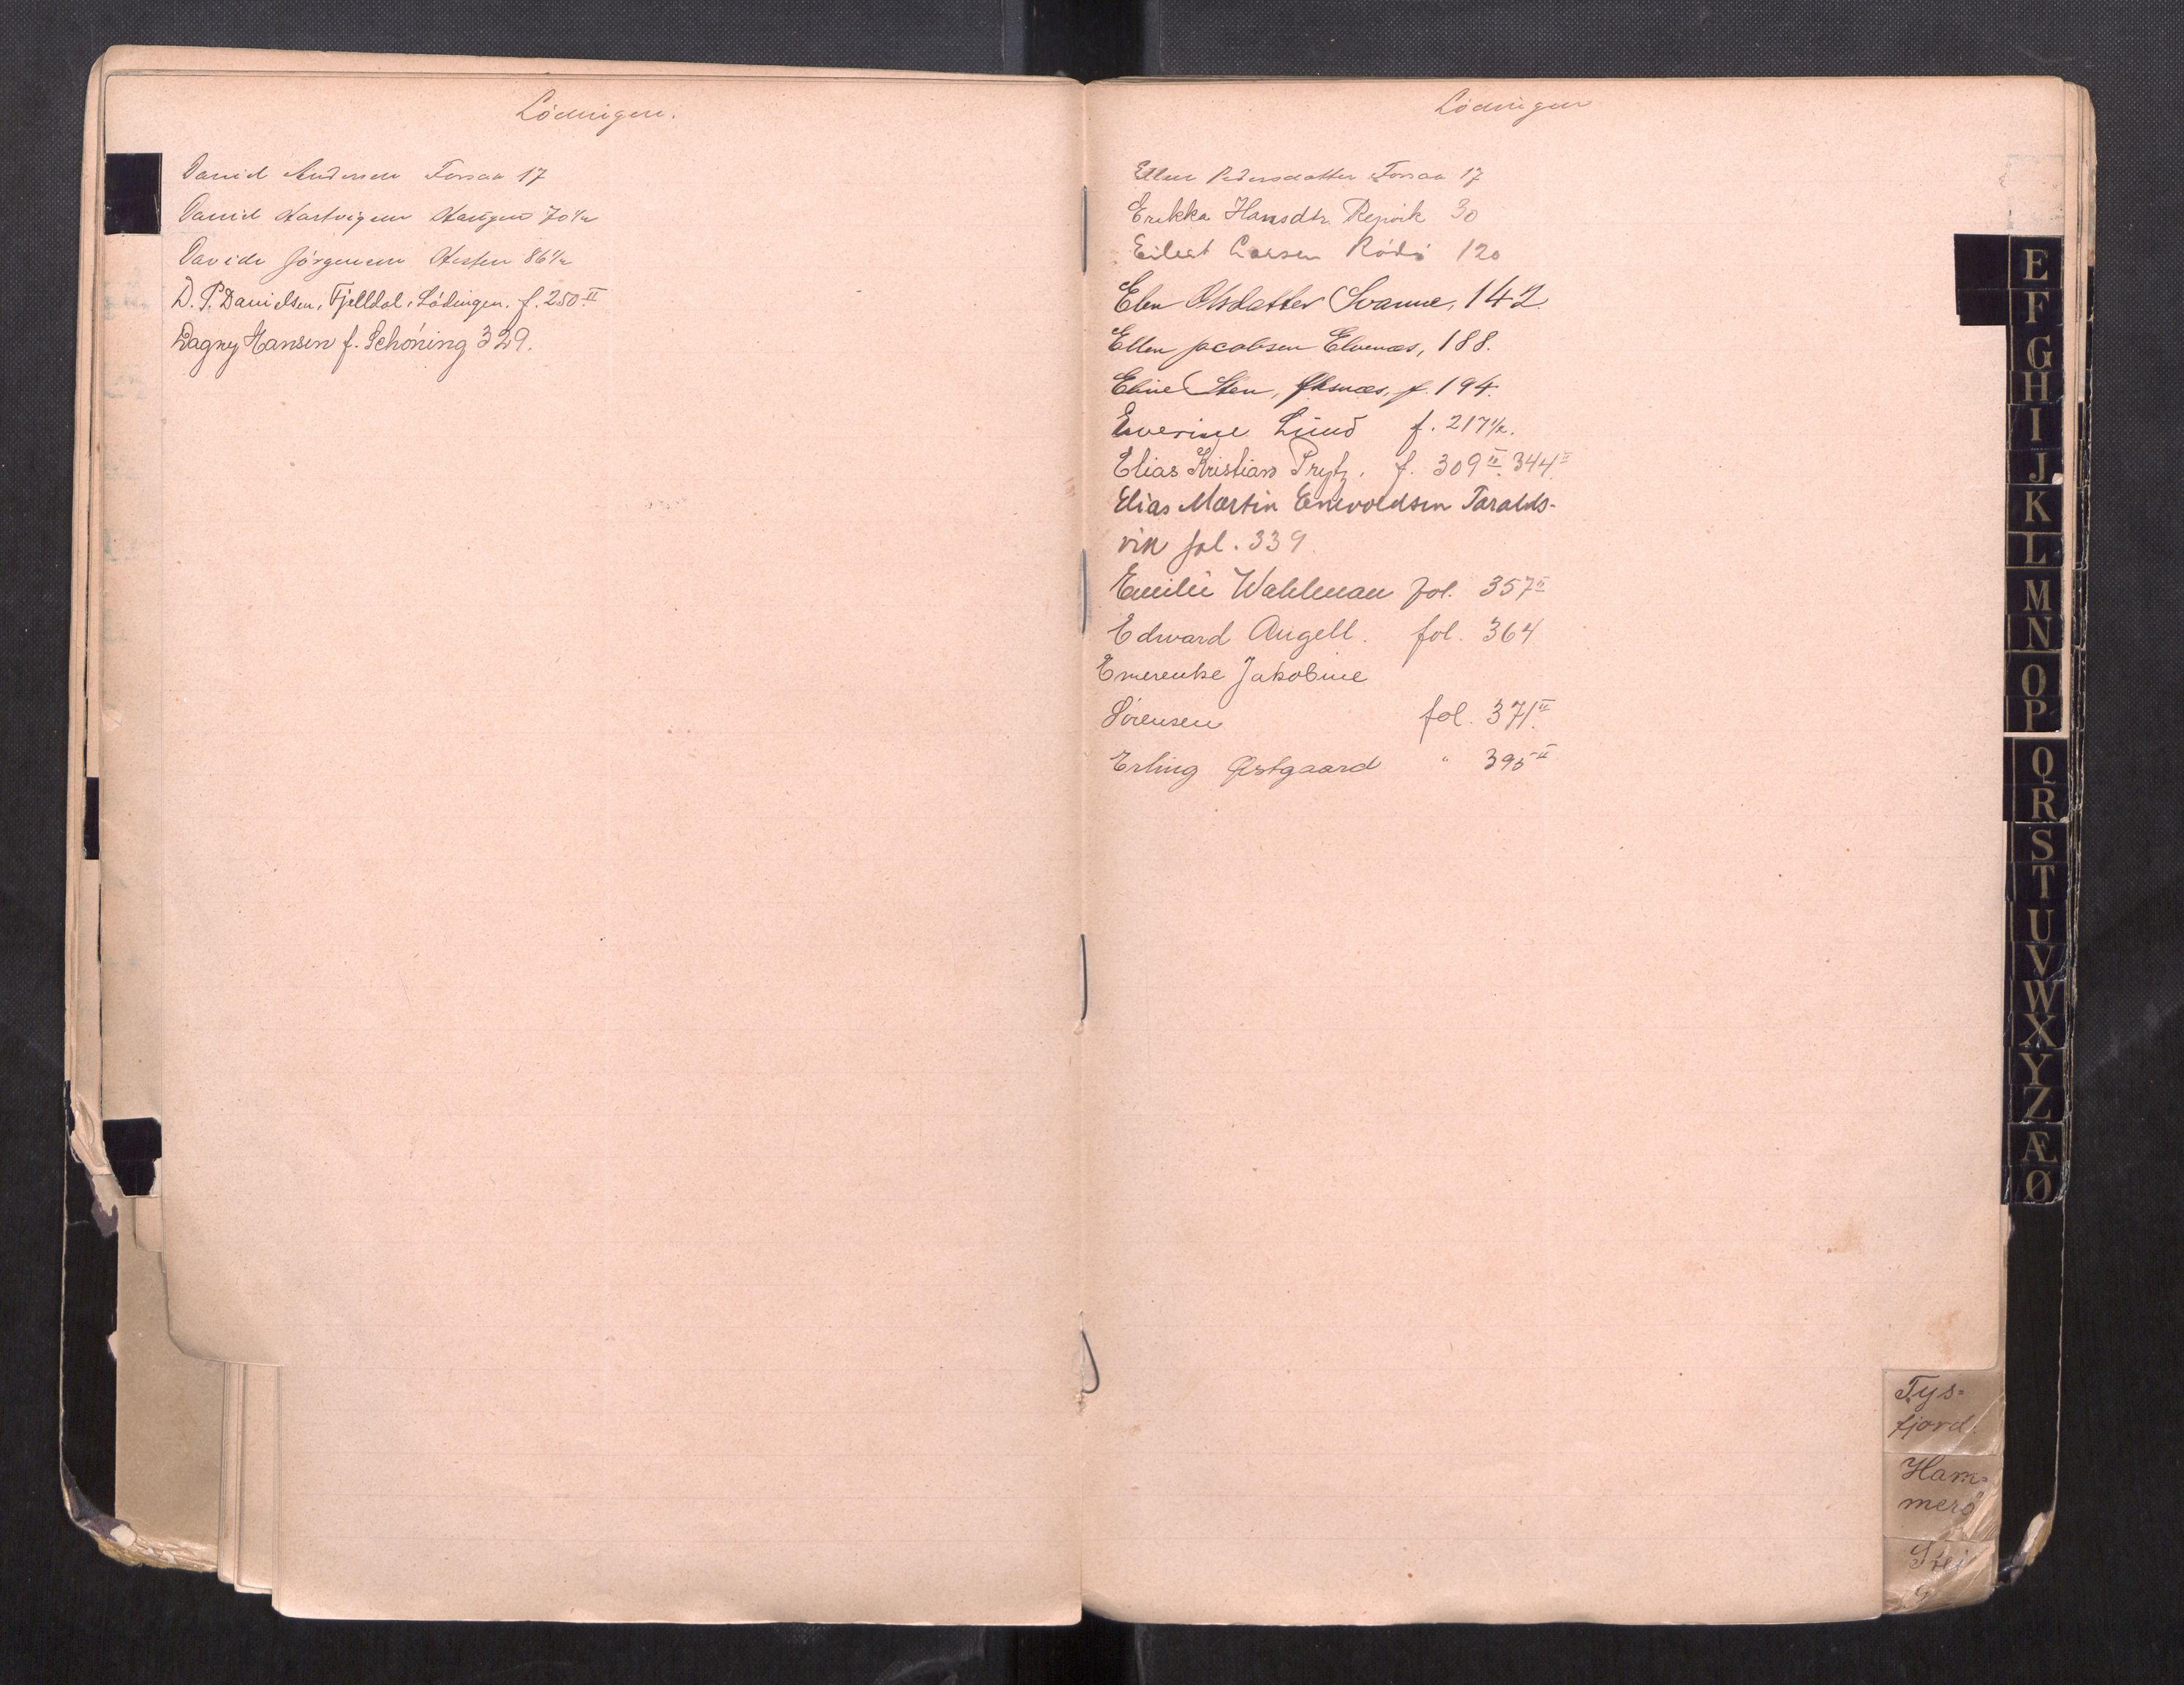 Lödingen.
Daniel Andersen Forsaa 17
Daniel Hartvigsen 70 1/2
Davida Jörgensen 86 1/2
D. P. Danielsen, Fjelldal, Lödingen. f. 250 II
Dagny Hansen f. Schöning 329.
Lödingen
Ellen Pedersdatter Forsaa 17
Erikka Hansdtr. Repvik 30
Eilert Larsen Rödö 120
Elen Olsdatter Svanne, 142.
Ellen Jacobsen Elvenæs, 188.
Eline Sten, Øksnæs, f. 194.
Lund f. 217 1/2.
Elias Kristian Prytz. f. 309 II 344 II
Elias Martin Enevoldsen Taralds-
vik fol. 339
Emilie Wahlman fol. 357 II
Edward Angell. fol. 364
Emerentse Jakobine
Sörensen fol. 371 II
Erling Østgaard " 395 II
E
F
G
H
I
J
K
L
M
N
O
P
Q
R
S
T
U
V
W
X
Y
Z
Æ
Ø
Tys-
fjord.
Ham-
merö